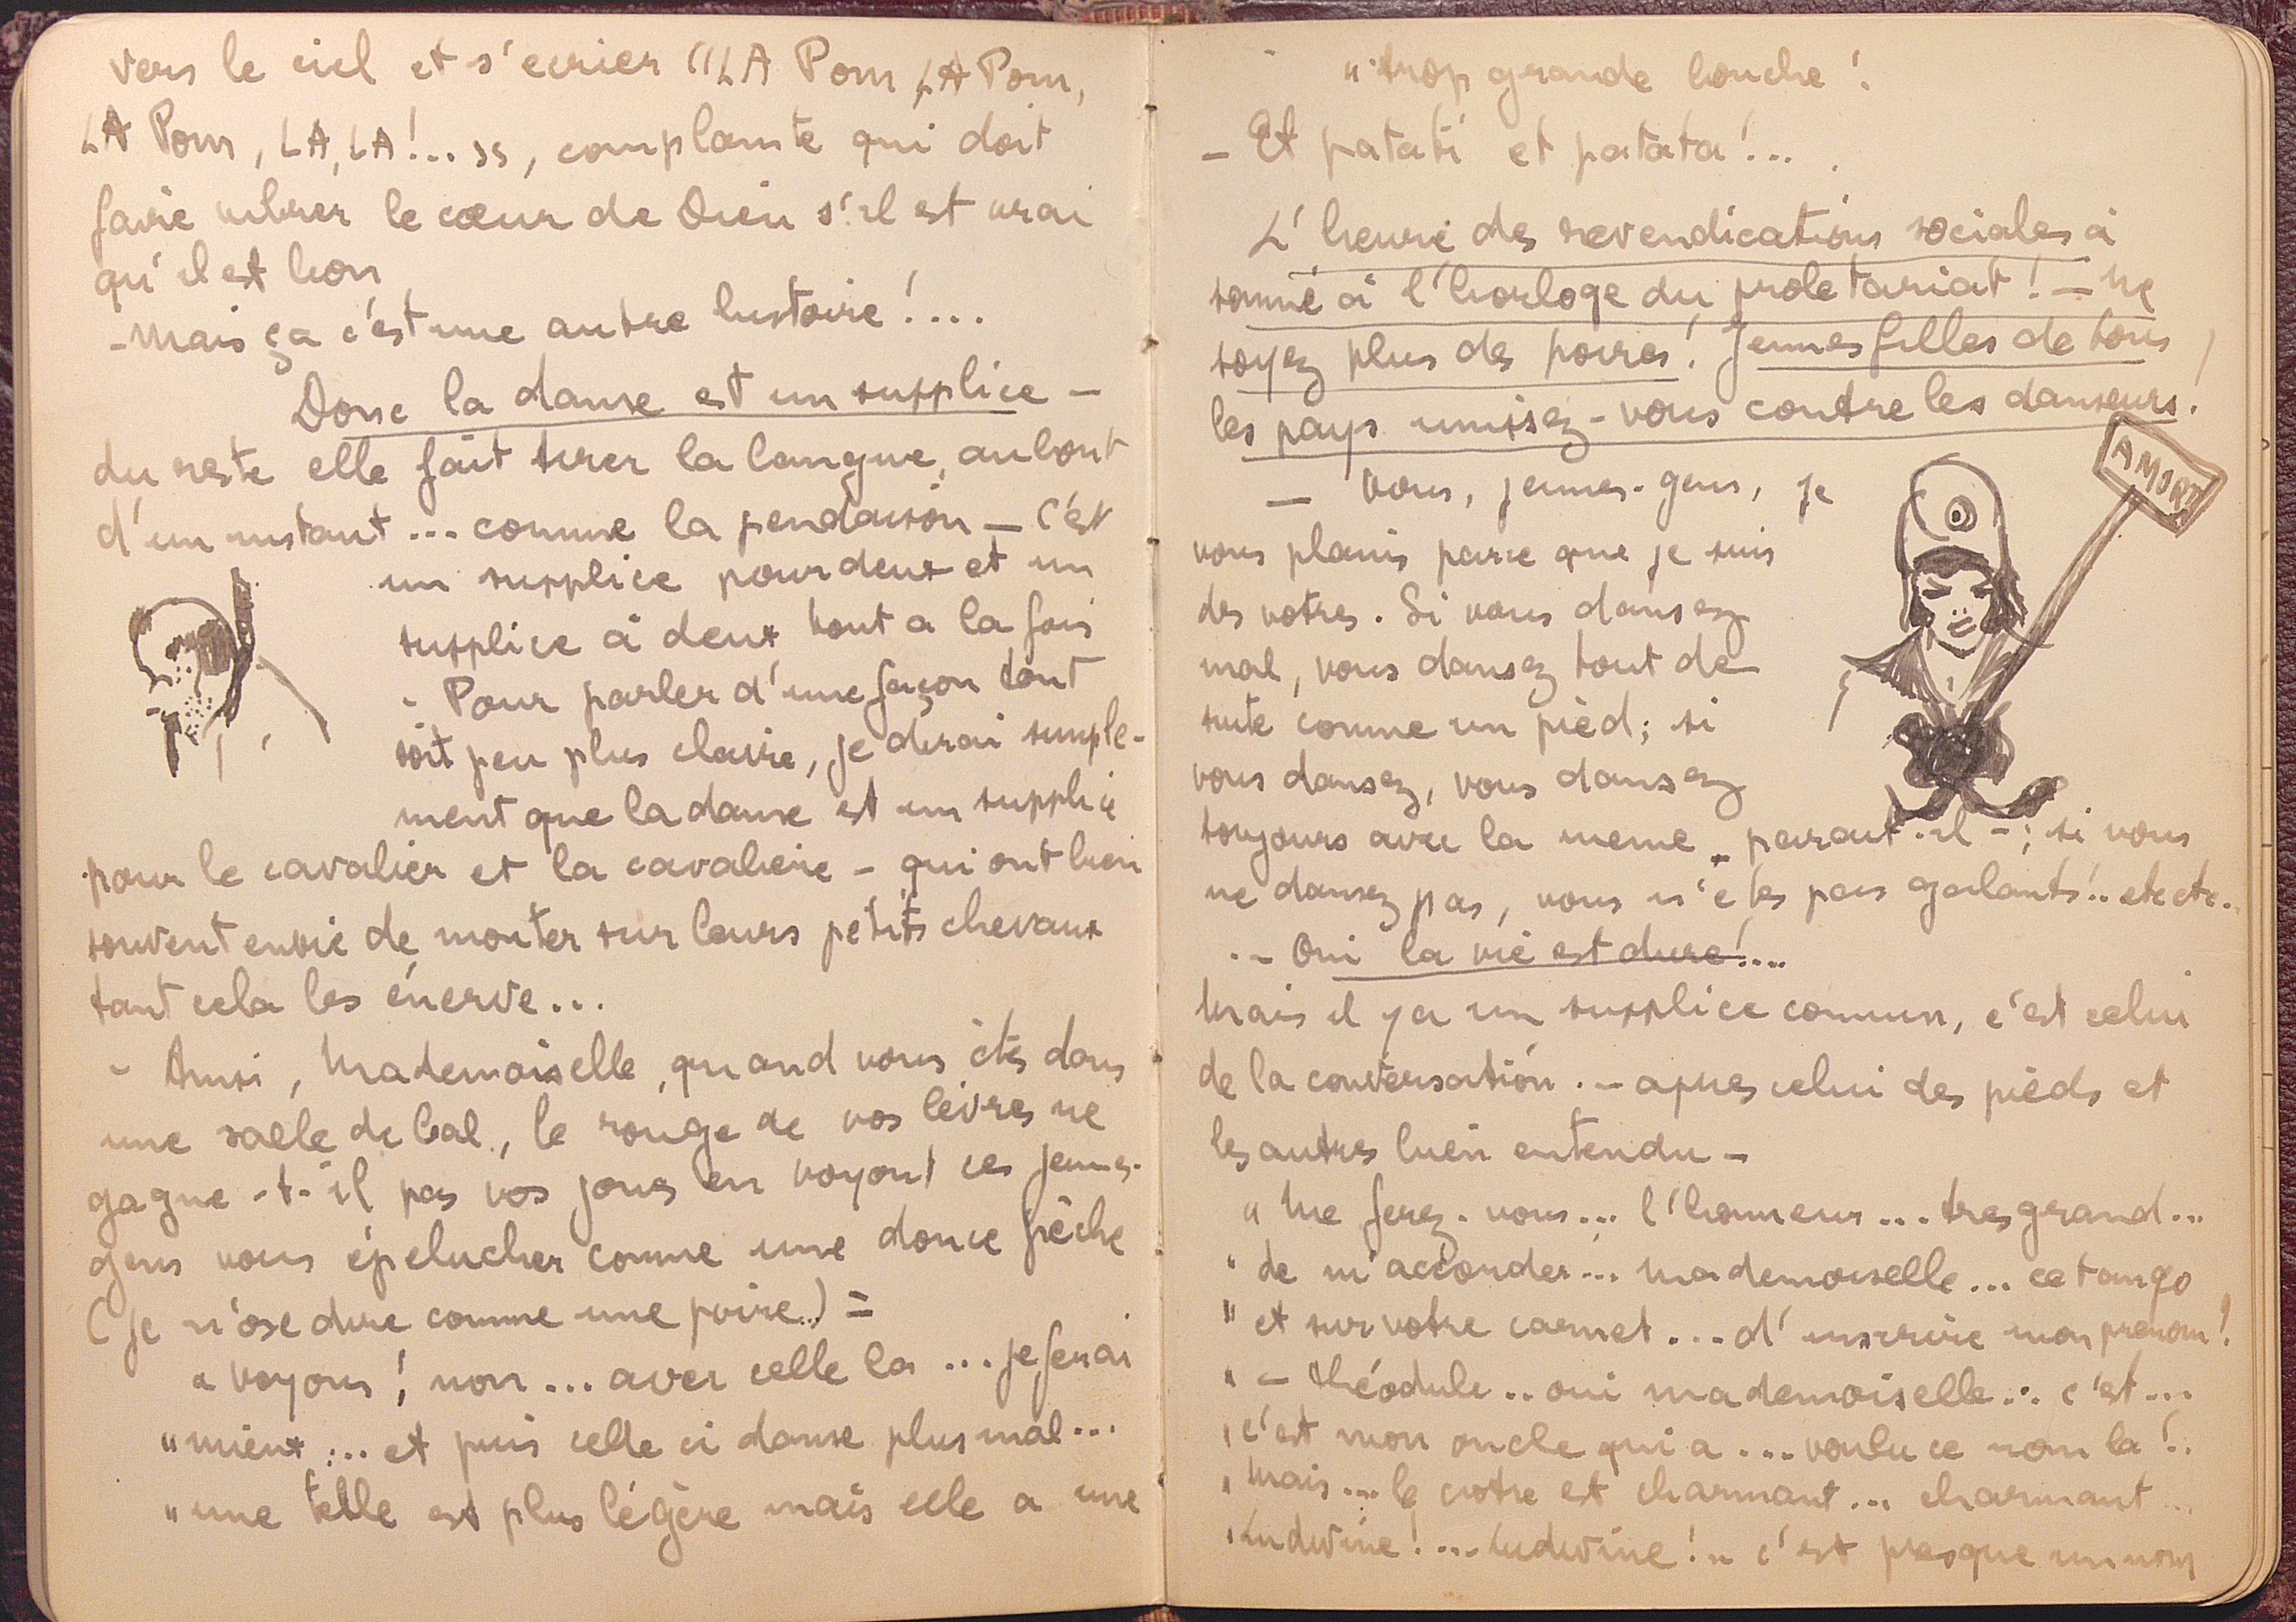 vers le ciel et s'ecrier "LA Pom LA Pom,
LA Pom, LA, LA!... ", complainte qui doit
faire vibrer le cœur de Dieu s'il est vrai
qu'il est bon
- Mais ça c'est une autre histoire!....
Donc la danse est un supplice -
du reste elle fait tirer la langue, au bout
d'un instant ... comme la pendaison - C'est
un supplice pour deux et un
supplice à deux tout a la fois
- Pour parler d'une façon tant
soit peu plus claire, je dirai simple-
ment que la danse est un supplice
pour le cavalier et la cavaliere - qui ont bien
souvent envie de monter sur leurs petits chevaux
tant cela les énerve...
- Ainsi, Mademoiselle, quand vous êtes dans
une salle de bal, le rouge de vos lèvres ne
gagne-t-il pas vos joues en voyant ces jeunes-
gens vous épelucher comme une douce pêche
(je n'ose dire comme une poire..) =
" voyons! non ... avec celle la ... je ferai
" mieux ... et puis celle ci danse plus mal ...
" une telle est plus légère mais elle a une
" trop grande bouche!
- Et patati et patata!...
L'heure des revendications sociales à
sonné à l'horloge du proletariat! - Ne
soyez plus des poires! Jeunes filles de tous
les pays unissez-vous contre les danseurs!
AMORT
- Vous, jeunes-gens, je
vous plains parce que je suis
des votres. Si vous dansez
mal, vous dansez tout de
suite comme un pièd; si
vous dansez, vous dansez
toujours avec la meme - parait-il -; si vous
ne dansez pas, vous n'êtes pas galants!.. etc etc..
.- Oui la vie est dure!....
Mais il y a un supplice commun, c'est celui
de la conversation. - apres celui des pièds et
les autres bien entendu -
" Me ferez-vous ... l'honneur ... tres grand ...
" de m'accorder ... Mademoiselle ... ce tango
" et sur votre carnet ... d'inscrire mon prenom!
" - Théodule .. oui mademoiselle ... c'est ...
" c'est mon oncle qui a .... voulu ce nom la!..
" Mais ... le votre est charmant ... charmant ..
" Ludivine! ... Ludivine!.. c'est presque un nom